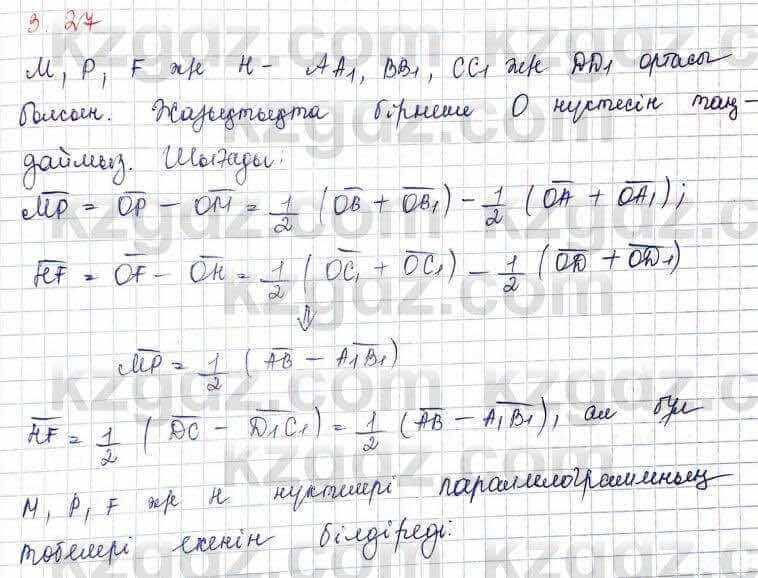 3.27
M, P, F жн H - AA₁, BB₁, CC₁ жн DD₁ ортасы
болсын. Жазықтықта бірнеше О нүктесін таң-
даймыз. Шығады:
MP = OP - OM = 1/2 (OB + OB₁) - 1/2 (OA + OA₁);
HF = OF - OH = 1/2 (OC₁ + OC₁) - 1/2 (OD + OD₁)
⇓
MP = 1/2 (AB - A₁B₁)
HF = 1/2 (DC - D₁C₁) = 1/2 (AB - A₁B₁), ал бұл
M, P, F жн H нүктелері параллелограммның
төбелері екенін білдіреді.
kzgdz.com